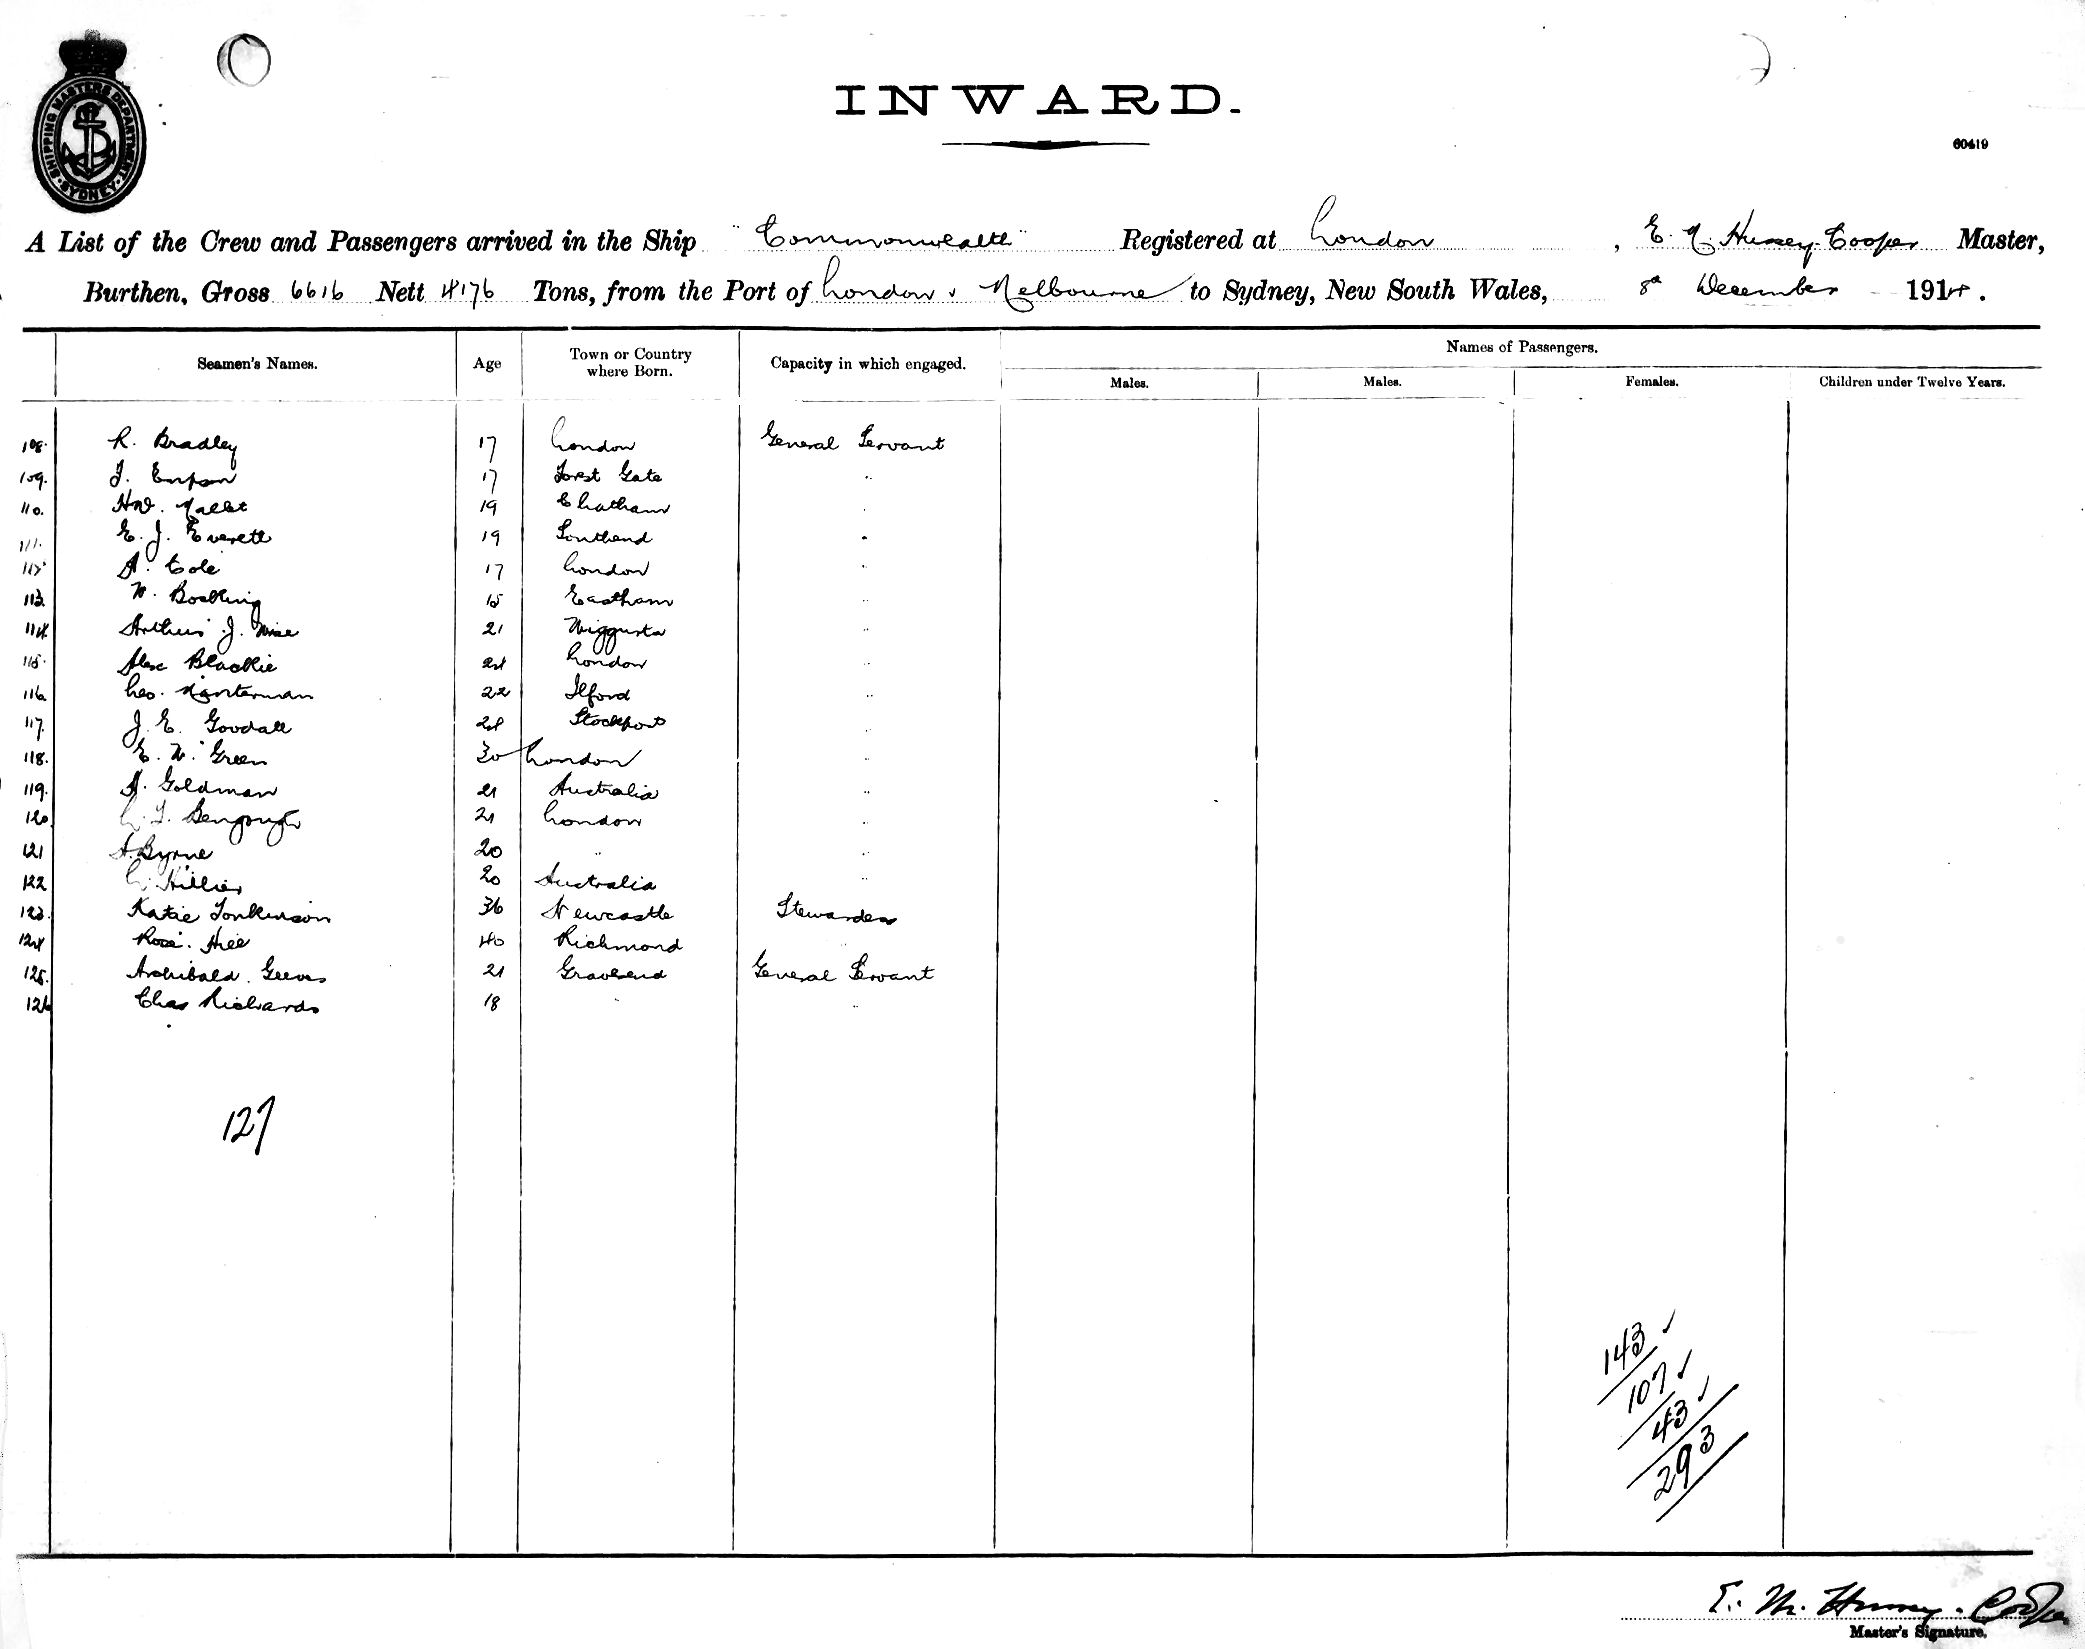 SHIPPING MASTERS DEPARTMENT
SYDNEY
INWARD.
60419
A List of the Crew and Passengers arrived in the Ship "Commonwealth" Registered at London, E. M. Hussey-Cooper Master,
Burthen, Gross 6616 Nett 4176 Tons, from the Port of London & Melbourne to Sydney, New South Wales, 8th December 1914.
Seamen's Names. Age Town or Country where Born. Capacity in which engaged. Names of Passengers.
Males. Males. Females. Children under Twelve Years.
108. R. Bradley 17 London General Servant
109. 17 Forest Gate "
110. 19 Chatham "
111. E. J. Everett 19 Southend "
112 A. Cole 17 London "
113. W. 15 Eastham "
114. Arthur J. Wise 21 "
115. Alex Blackie 24 London "
116. Geo. 22 Ilford "
117. J. E. Goodall 24 Stockport "
118. E. W. Green 30 London "
119. A. Goldman 21 Australia "
120. Bengough 21 London "
121 A. Byrne 20 " "
122 Hillier 20 Australia "
123. Katie Tonkinson 36 Newcastle Stewardess
124 Rose Hill 40 Richmond "
125. Archibald Geeves 21 Gravesend General Servant
126 Chas Richards 18 " "
127
143 ✓
107 ✓
43 ✓
293
E. M. Hussey-Cooper
Master's Signature.